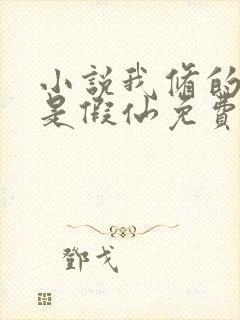 小説我脩的
是假仙免費
鄧戈